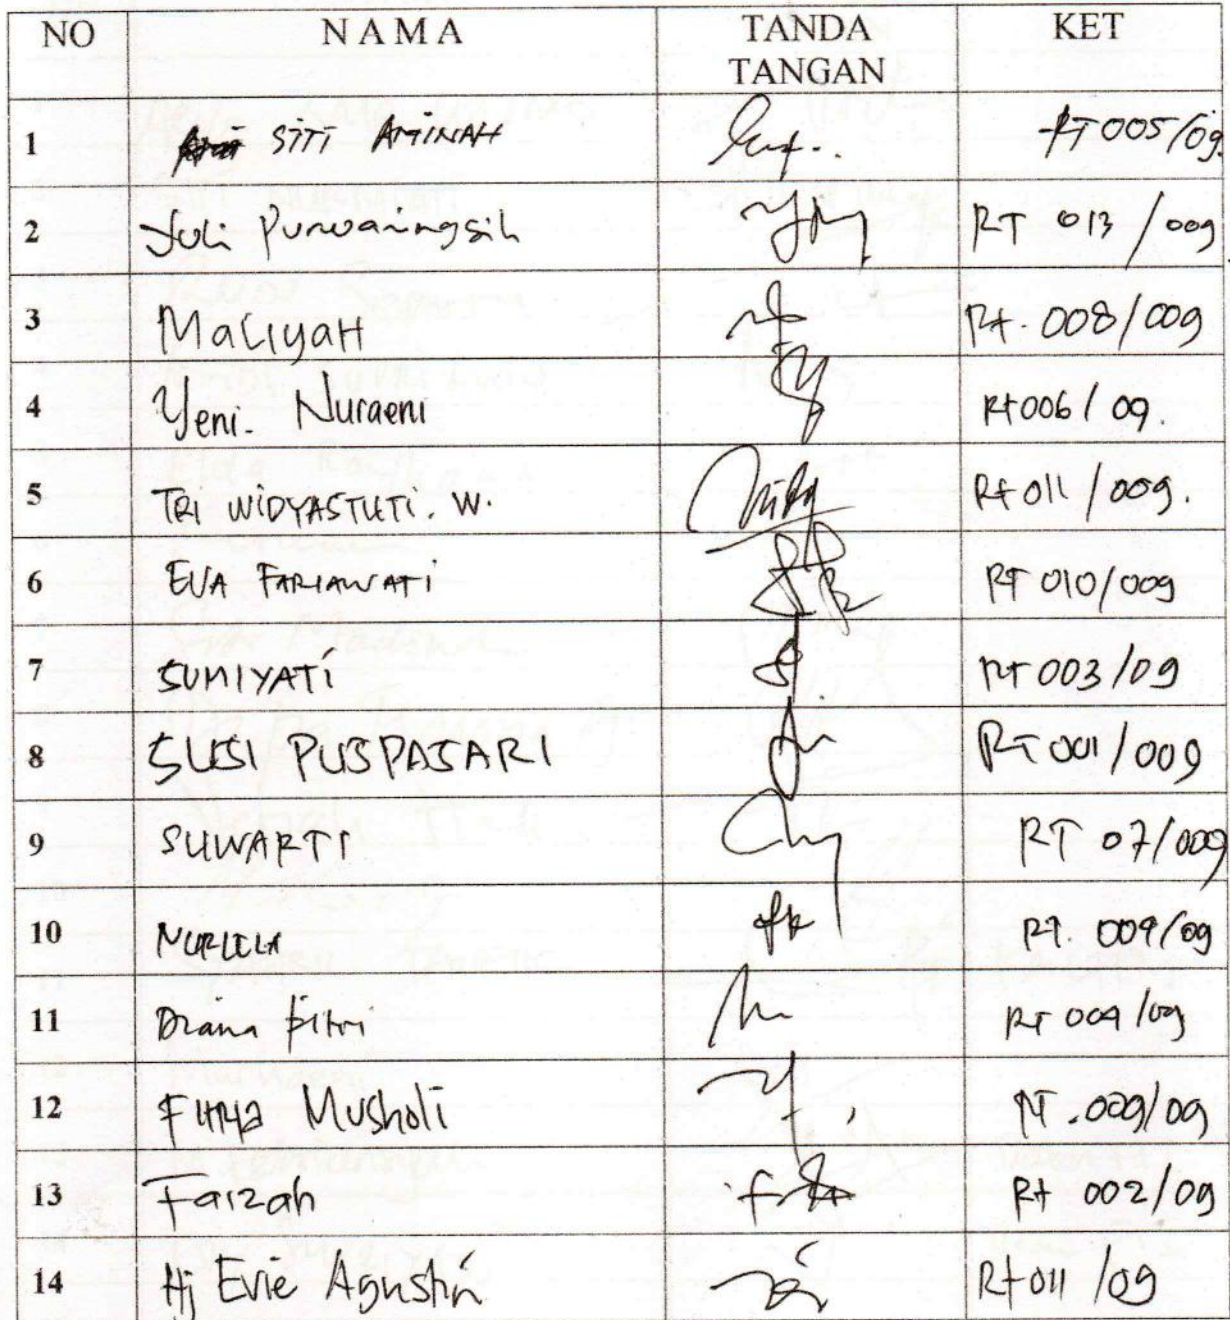 NO NAMA TANDA TANGAN KET
1 SITI AMINAH RT 005/09.
2 Juli Purwaningsih RT 013 / 009
3 MALIYAH Rt. 008/009
4 Yeni. Nuraeni Rt 006 / 09.
5 TRI WIDYASTUTI. W. Rt 011 / 009.
6 EVA FARIAWATI RT 010/009
7 SUMIYATI RT 003/09
8 SUSI PUSPASARI RT 001/009
9 SUWARTI RT 07/009
10 NURLELA RT. 009/09
11 Diana Fitri RT 004/09
12 Musholi RT .009/09
13 Faizah Rt 002/09
14 Hj Evie Agustin Rt 011 /09